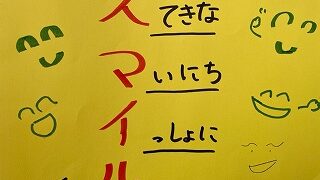 スてきな
マいにち
イっしょに
ル